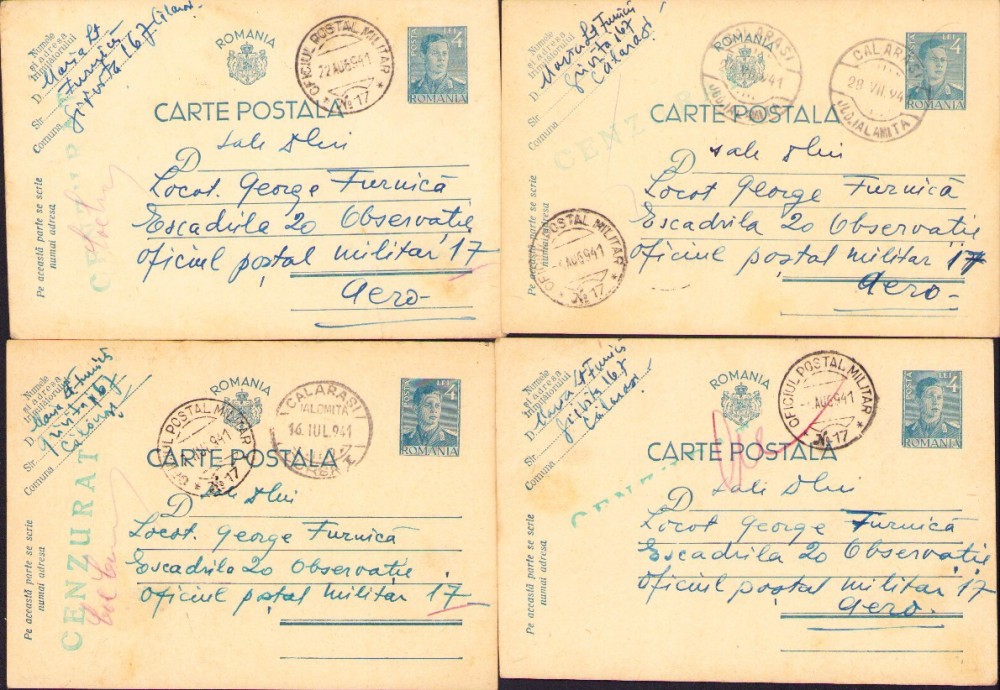 Numele
și adresa
înmpișorului
D Maria Lt
Furnică
Str. Grivița 167 Călărași
Comuna
ROMANIA
OFICIUL POSTAL MILITAR
22 AUG 941
* No 17 *
POSTA 4 LEI
ROMANIA
CARTE POSTALA
Pe această parte se scrie
numai adresa
D sale Dlui
Locot. George Furnică
Escadrila 20 Observatie
Oficiul poștal militar 17
Aero-
Numele
și adresa
D Maria Lt Furnică
Str. Grivița 167
Călărași
Comuna
ROMANIA
CALARASI
941
JUD. IALOMITA
CALARASI
28 VII 94
JUD. IALOMITA
LEI 4
ROMANIA
CENZ
CARTE POSTALA
Pe această parte se scrie
numai adresa
OFICIUL POSTAL MILITAR
AUG 941
* No 17 *
D sale Dlui
Locot George Furnică
Escadrila 20 Observatie
Oficiul poștal militar 17
Aero-
Numele
și adresa
D Maria Lt Furnică
Str. Grivița 167
Călărași
Comuna
ROMANIA
OFICIUL POSTAL MILITAR
IUL 941
* No 17 *
CALARASI
IALOMITA
16 IUL. 941
POSTA LEI 4
ROMANIA
CARTE POSTALA
CENZURAT
Pe această parte se scrie
numai adresa
D sale Dlui
Locot. George Furnică
Escadrila 20 Observatie
Oficiul poștal militar 17
Numele
și adresa
D Maria Lt Furnică
Str. Grivița 167
Călărași
Comuna
ROMANIA
OFICIUL POSTAL MILITAR
AUG 941
No 17 *
POSTA LEI 4
ROMANIA
CARTE POSTALA
Pe această parte se scrie
numai adresa
D sale Dlui
Locot George Furnică
Escadrila 20 Observatie
Oficiul poștal militar 17
Aero.